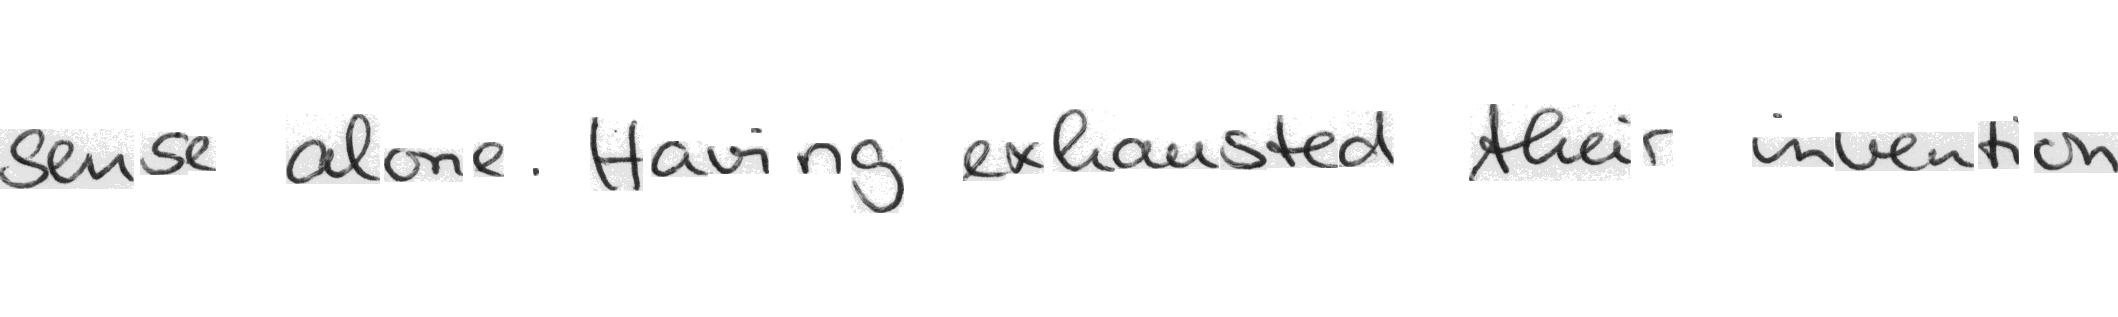 sense alone. Having exhausted their invention